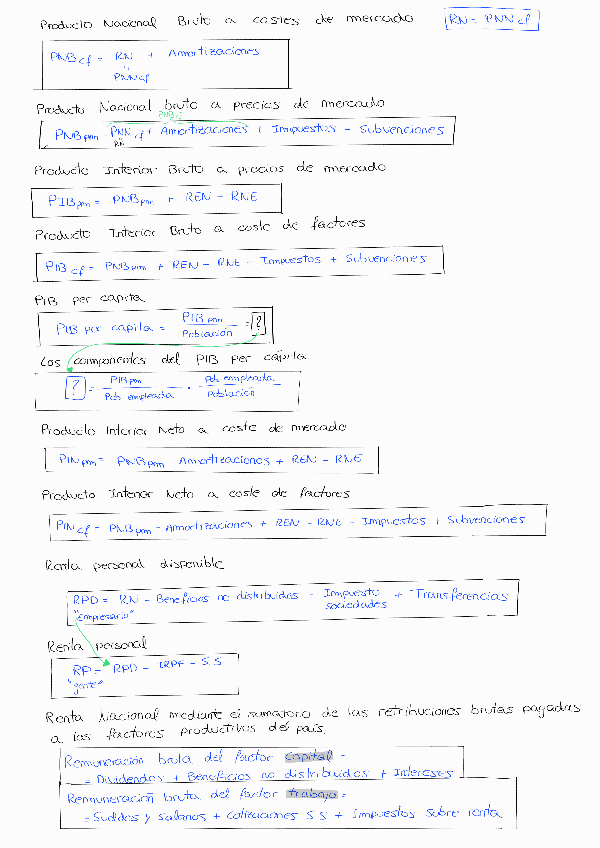 Producto Nacional Bruto a costes de mercado
RN = PNNcf
PNBcf = RN + Amortizaciones
PNNcf
Producto Nacional bruto a precios de mercado
PNBcf
PNBpm PNNcf + Amortizaciones + Impuestos - Subvenciones
RN
Producto Interior Bruto a precios de mercado
PIBpm = PNBpm + REN - RNE
Producto Interior Bruto a coste de factores
PIBcf = PNBpm + REN - RNE - Impuestos + Subvenciones
PIB per capita
PIB per capita = PIBpm / Población = ?
Los componentes del PIB per cápita
? = PIBpm / Pob empleada · Pob empleada / Población
Producto Interior Neto a coste de mercado
PINpm = PNBpm Amortizaciones + REN - RNE
Producto Interior Neto a coste de factores
PINcf = PNBpm - Amortizaciones + REN - RNE - Impuestos + Subvenciones
Renta personal disponible
RPD = RN - Beneficios no distribuidos - Impuesto sociedades + Transferencias
"Empresario"
Renta personal
RP = RPD - IRPF - S.S
"gente"
Renta Nacional mediante el sumatorio de las retribuciones brutas pagadas
a los factores productivos del país.
Remuneración bruta del factor capital =
= Dividendos + Beneficios no distribuidos + Intereses
Remuneración bruta del factor trabajo =
= Sueldos y salarios + Cotizaciones S.S + Impuestos sobre renta